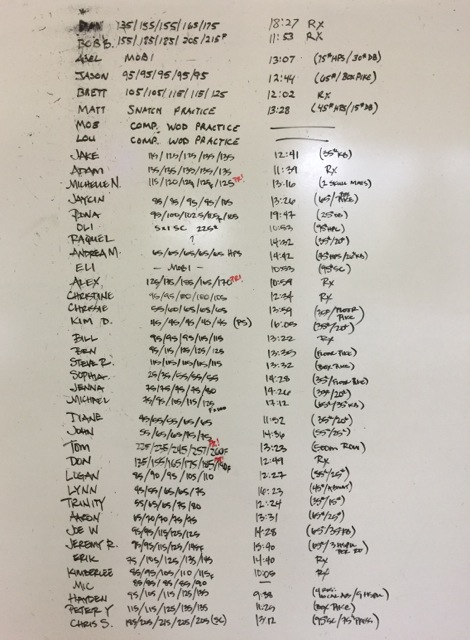 135/155/155/165/175 18:27 RX
BOB B. 155/185/185/205/215# 11:53 RX
ABEL MOBI 13:07 (75# HPS/30# DB)
JASON 95/95/95/95/95 12:44 (65#/BOX PIKE)
BRETT 105/105/115/115/125 12:02 RX
MATT SNATCH PRACTICE 13:28 (45# HPS/15# DB)
MOB COMP. WOD PRACTICE
LOU COMP. WOD PRACTICE
JAKE 115/125/125/135/135 12:41 (35# KB)
ADAM 135/135/135/135/135 11:39 RX
MICHELLE N. 115/120/125/125/125 PR! 13:16
JAYCIN 85/85/95/95/105 13:26
95/100/102.5/105/105 19:47
OLI 5x1 SC 225# 10:53
RAQUEL ? 14:32 (35#/20#)
ANDREA M. 65/65/65/65/65 HPS 14:42
ELI - MOBI - 10:53 (95# SC)
ALEX 125/135/155/165/170 PR! 10:59 RX
CHRISTINE 95/95/100/100/105 12:34 RX
CHRSSIE 55/60/65/65/65 13:59
KIM D. 45/45/45/45/45 (PS) 16:05 (35#/20#)
BILL 95/95/95/115/115 13:22 RX
BEN 95/115/115/125/125 (FLOOR PIKE)
STEVE R. 115/115/115/115/115 13:32 (BOX PIKE)
SOPHIA 25/35/55/55/55 14:28
JENNA 75/75/75/75/80 14:26
MICHAEL 75/75/105/115/125 17:12
DIANE 45/55/55/65/65 11:52 (35#/20#)
JOHN 55/65/65/75/75 14:36 (55#/25#)
TOM 225/235/245/257/260# PR! 13:23 (500M ROW)
DON 135/155/165/175/185 12:49 RX
LOGAN 85/90/95/105/110 12:27
LYNN 45/55/65/65/75 16:23
TRINITY 55/65/65/75/80 12:24 (35#/15#)
AARON 65/70/70/75/95 13:31 (65#/25#)
JOE W 95/95/115/125/125 14:28
JEREMY R. 75/95/115/125/135# 15:40
ERIK 75/105/125/135/145 14:40 RX
KIMBERLEE 85/95/105/110/115# 10:05 RX
MIC 85/85/85/85/90 —
HAYDEN 95/105/115/125/135 9:38
PETER Y 115/115/125/135/135 11:23 (BOX PIKE)
CHRIS S. 195/205/215/225/205 (SC) 13:12